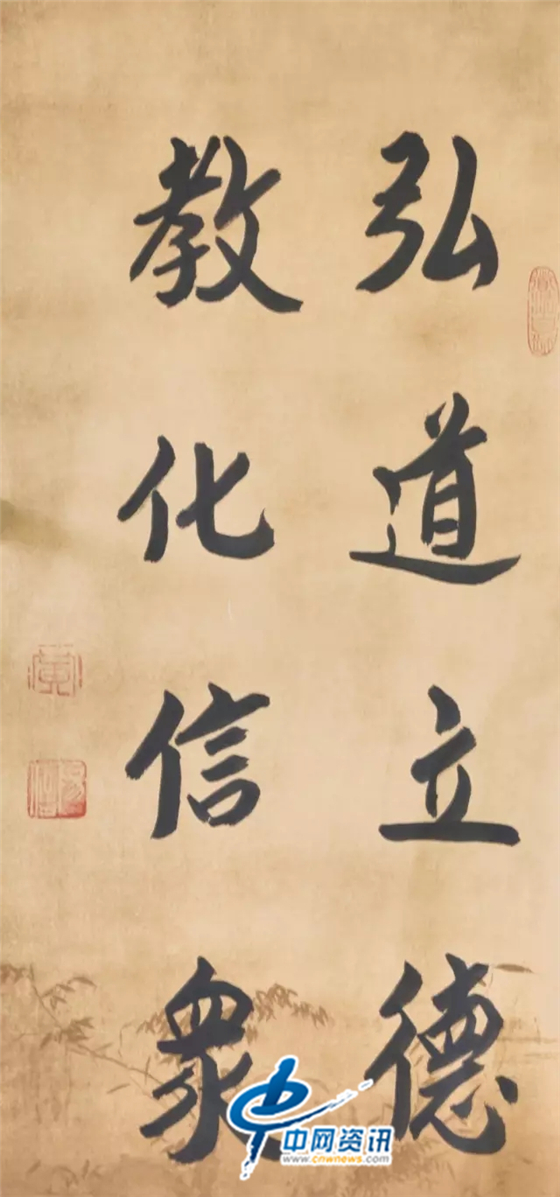 弘道立德
教化信眾
中网资讯
www.cnwnews.com